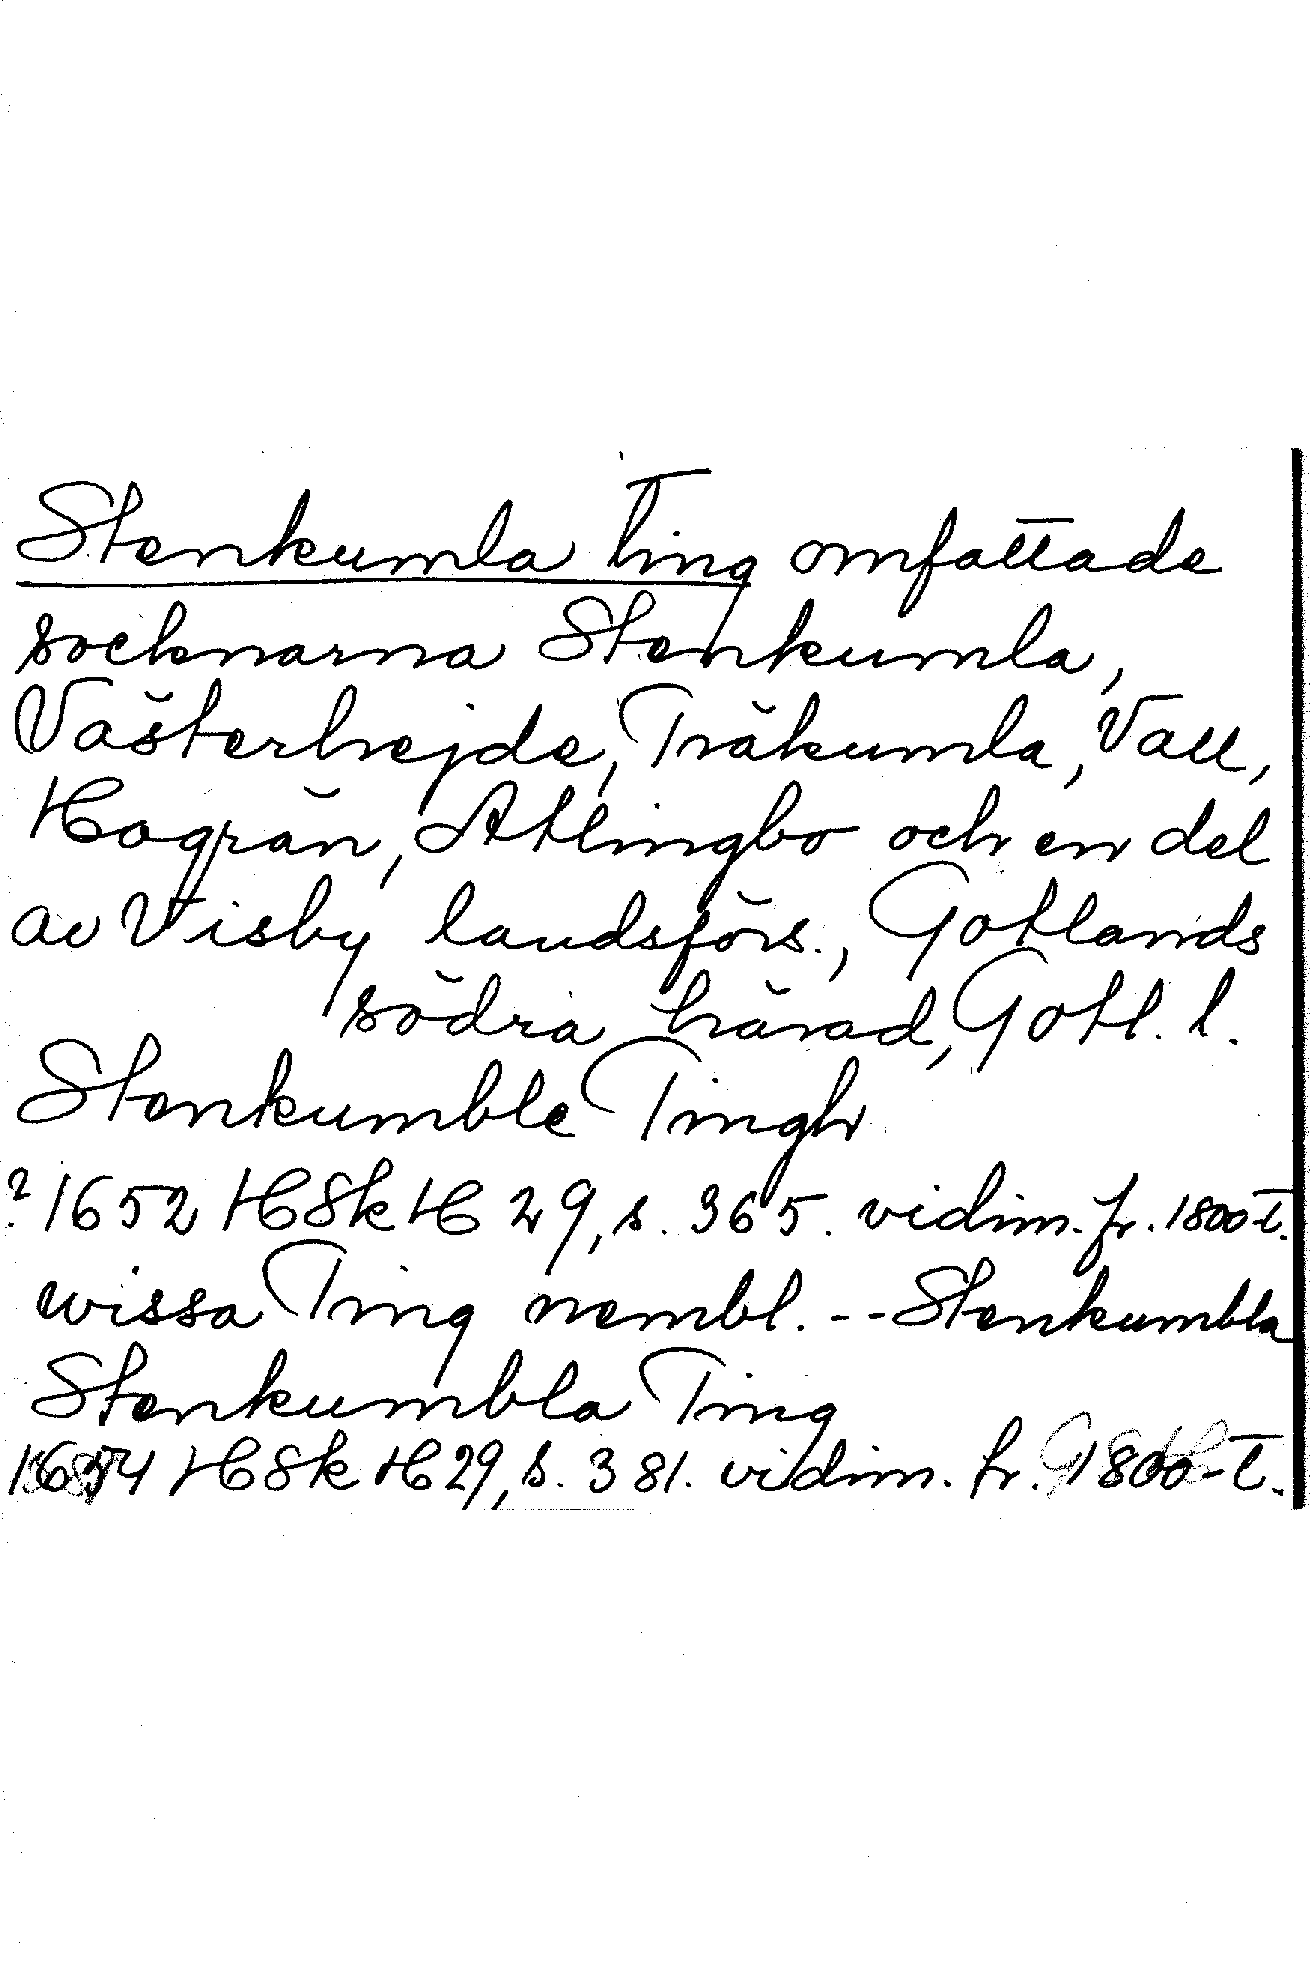 Stenkumla Ting omfattade
socknarna Stenkumla,
Västerhejde, Träkumla, Vall,
Hogrän, Atlingbo och en del
av Visby landsförs., Gotlands
södra härad, Gotl. l.
Stenkumble Tingh
? 1652 HSk H 29, s. 365. vidim. fr. 1800-t.
wissa Ting nembl. -- Stenkumbla
Stenkumbla Ting
HSk H 29, s. 381. vidim. fr. 1800-t.